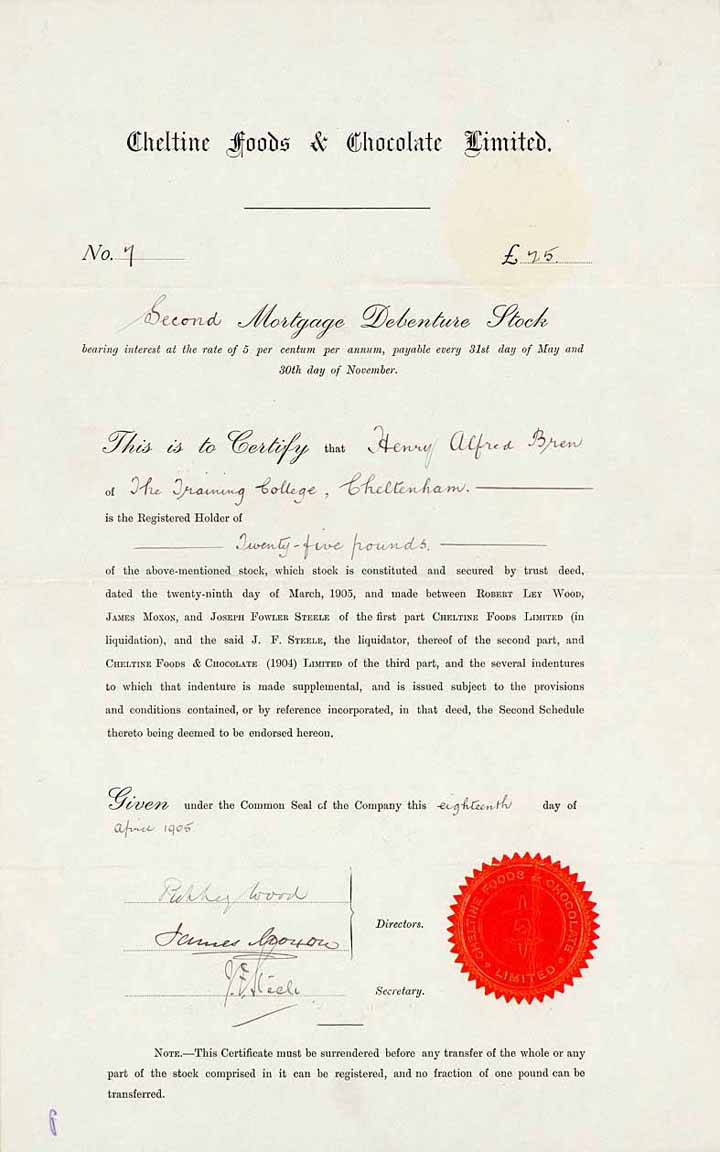 Cheltine Foods & Chocolate Limited.
No. 7 £ 25.
Second Mortgage Debenture Stock
bearing interest at the rate of 5 per centum per annum, payable every 31st day of May and
30th day of November.
This is to Certify that Henry Alfred Bren
of The Training College, Cheltenham.
is the Registered Holder of
Twenty-five pounds.
of the above-mentioned stock, which stock is constituted and secured by trust deed,
dated the twenty-ninth day of March, 1905, and made between Robert Ley Wood,
James Moxon, and Joseph Fowler Steele of the first part Cheltine Foods Limited (in
liquidation), and the said J. F. Steele, the liquidator, thereof of the second part, and
Cheltine Foods & Chocolate (1904) Limited of the third part, and the several indentures
to which that indenture is made supplemental, and is issued subject to the provisions
and conditions contained, or by reference incorporated, in that deed, the Second Schedule
thereto being deemed to be endorsed hereon.
Given under the Common Seal of the Company this eighteenth day of
April 1905.
Wood
James Moxon
Directors.
J. F. Steele
Secretary.
CHELTINE FOODS & CHOCOLATE
LIMITED
Note.—This Certificate must be surrendered before any transfer of the whole or any
part of the stock comprised in it can be registered, and no fraction of one pound can be
transferred.